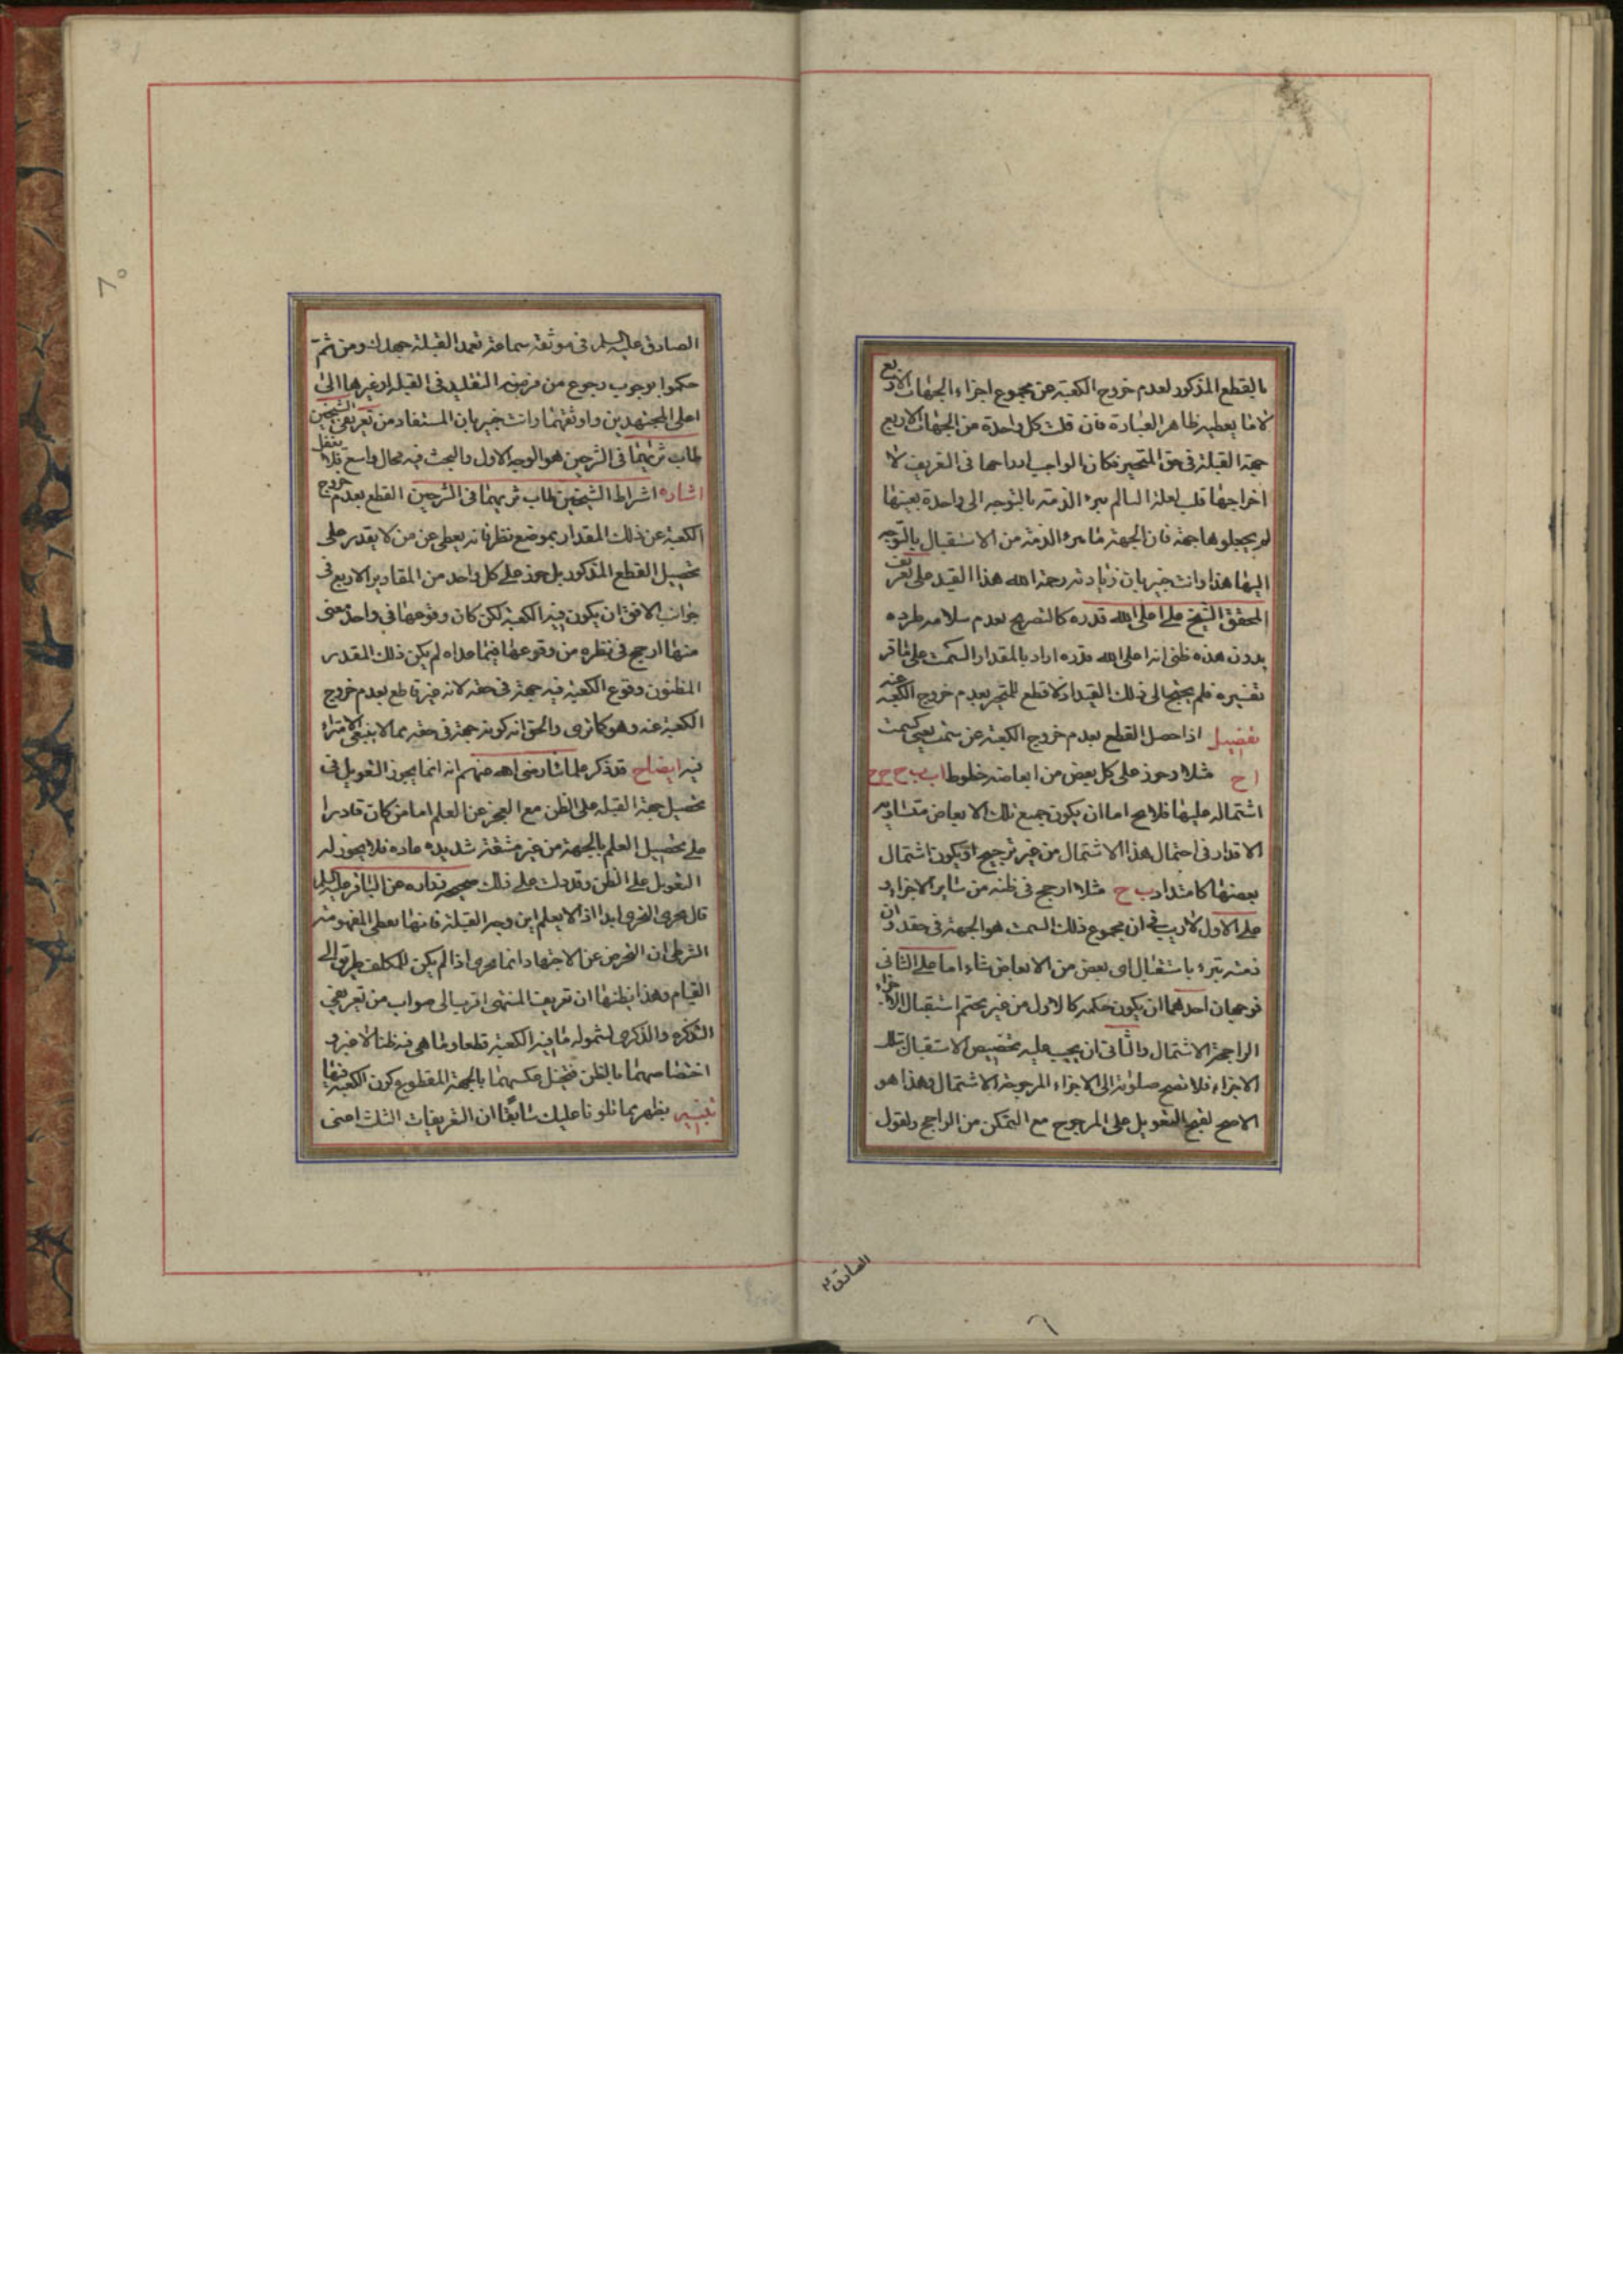 بالقطع المذكور لعدم خروج الكعبة عن مجموع اجزاء الجهات الاربع
كما يعطيه ظاهر العبارة فان قلت كل واحدة من الجهات الاربع
جهة القبلة فى حق المتحير فكان الواجب ادراجها فى التعريف لا
اخراجها قلت لعله السالم يبرء الذمة بالتوجه الى واحدة بعينها
لم يجعلوها جهة فان الجهة ما يبرء الذمة من الاستقبال بالتوجه
اليها هذا وانت خبير بان زيادته رحمه الله هذا القيد على تعريف
المحقق الشيخ على اعلى الله قدره كالتصريح بعدم سلامة طرده
بدون هذه ظنى انه اعلى الله قدره اراد بالمقدار السمت على ما قر
تفسيره فلم يحتج الى ذلك القيد اذ لا قطع للمتحير بعدم خروج الكعبة عنه
تفصيل اذا حصل القطع بعدم خروج الكعبة عن سمت يعنى كسمت
ا ح مثلا وجوز على كل بعض من ابعاضه خلوط ا ب ب ح ح ح
اشتماله عليها فلا يخ اما ان يكون جميع تلك الابعاض متساوية
الاقدار فى احتمال هذا الاشتمال من غير ترجيح او يكون اشتمال
بعضها كامتداد ب ح مثلا ارجح فى ظنه من ساير الاجزاء و
على الاول لا ريب فى ان مجموع ذلك السمت هو الجهة فى حقه وان
ذمته تبرء باستقبال اى بعض من الابعاض شاء اما على الثانى
فوجهان احدهما ان يكون حكمه كالاول من غير تحتم استقبال الاجزاء
الراجحة الاشتمال والثانى ان يجب عليه تخصيص الاستقبال بتلك
الاجزاء فلا تصح صلوته الى الاجزاء المرجوحة الاشتمال وهذا هو
الاصح لقبح التعويل على المرجوح مع التمكن من الراجح ولقول
الصادق ع
الصادق عليه السلم فى موثقة سماعة تعمد القبلة جهدك ومن ثم
حكموا بوجوب رجوع من فرضه التقليد فى القبلة او غيرها الى
اعلى المجتهدين واوثقهما وانت خبير بان المستفاد من تعريفى الشيخين
طاب ثريهما فى الشرحين هو الوجه الاول والبحث فيه مجال واسع فلا تغفل
اشارة اشتراط الشيخين طاب ثريهما فى الشرحين القطع بعدم خروج
الكعبة عن ذلك المقدار بموضع نظر فانه يعطى عن من لا يقدر على
تحصيل القطع المذكور بل جوز على كل واحد من المقادير الاربع فى
جوانب الافق ان يكون فيه الكعبة لكن كان وقوعها فى واحد معنى
منها ارجح فى نظره من وقوعها فيما عداه لم يكن ذلك المقدر
المظنون وقوع الكعبة فيه جهة فى حقه لانه غير قاطع بعدم خروج
الكعبة عنه وهو كما ترى والحق انه كونه جهة فى حقه مما لا ينبغى الامتراء
فيه ايضاح قد ذكر علماؤنا رضى الله عنهم انه انما يجوز التعويل فى
تحصيل جهة القبلة على الظن مع العجز عن العلم اما من كان قادرا
على تحصيل العلم بالجهة من غير مشقة شديدة عادة فلا يجوز له
التعويل على الظن وقد دلت على ذلك صحيحة زرارة عن الباقر عليه السلم
قال يجزى التحرى ابدا اذا لا يعلم اين وجه القبلة فانها تعطى المفهومة
الشرطى ان التحرى عن الاجتهاد انما يجزى اذا لم يكن للمكلف طريق الى
القيام وهذا يظنها ان تعريف المنتهى اقرب الى صواب من تعريفى
التذكرة والذكرى لشموله ما فيه الكعبة قطعا وما هى فيه ظنا لا غير و
اختصاصهما بالظن فتختل عكسهما بالجهة المقطوع كون الكعبة فيها
تبصير يظهر بما تلونا عليك سابقا ان التعريفات الثلث اعنى